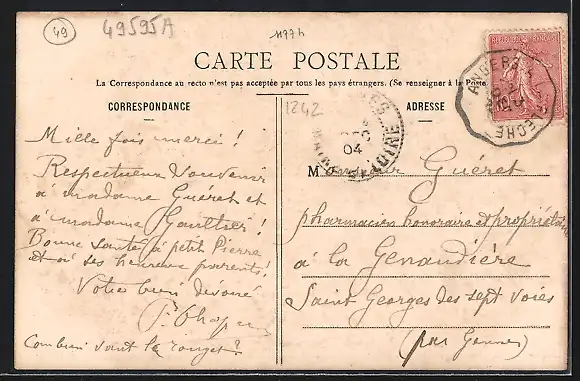 49
49595A
1197h
CARTE POSTALE
La Correspondance au recto n'est pas acceptée par tous les pays étrangers. (Se renseigner à la Poste
CORRESPONDANCE
ADRESSE
1242
ANGERS
FLÈCHE
04
LOIRE
Mille fois merci !
Respectueux souvenir
à madame Guéret et
à madame Gaultier !
Bonne santé à petit Pierre
et à ses heureux parents !
Votre bien dévoué
Combien vaut le rouget ?
Monsieur Guéret
pharmacien honoraire et propriétaire
à la Genaudière
Saint Georges des sept voies
(par Gennes)